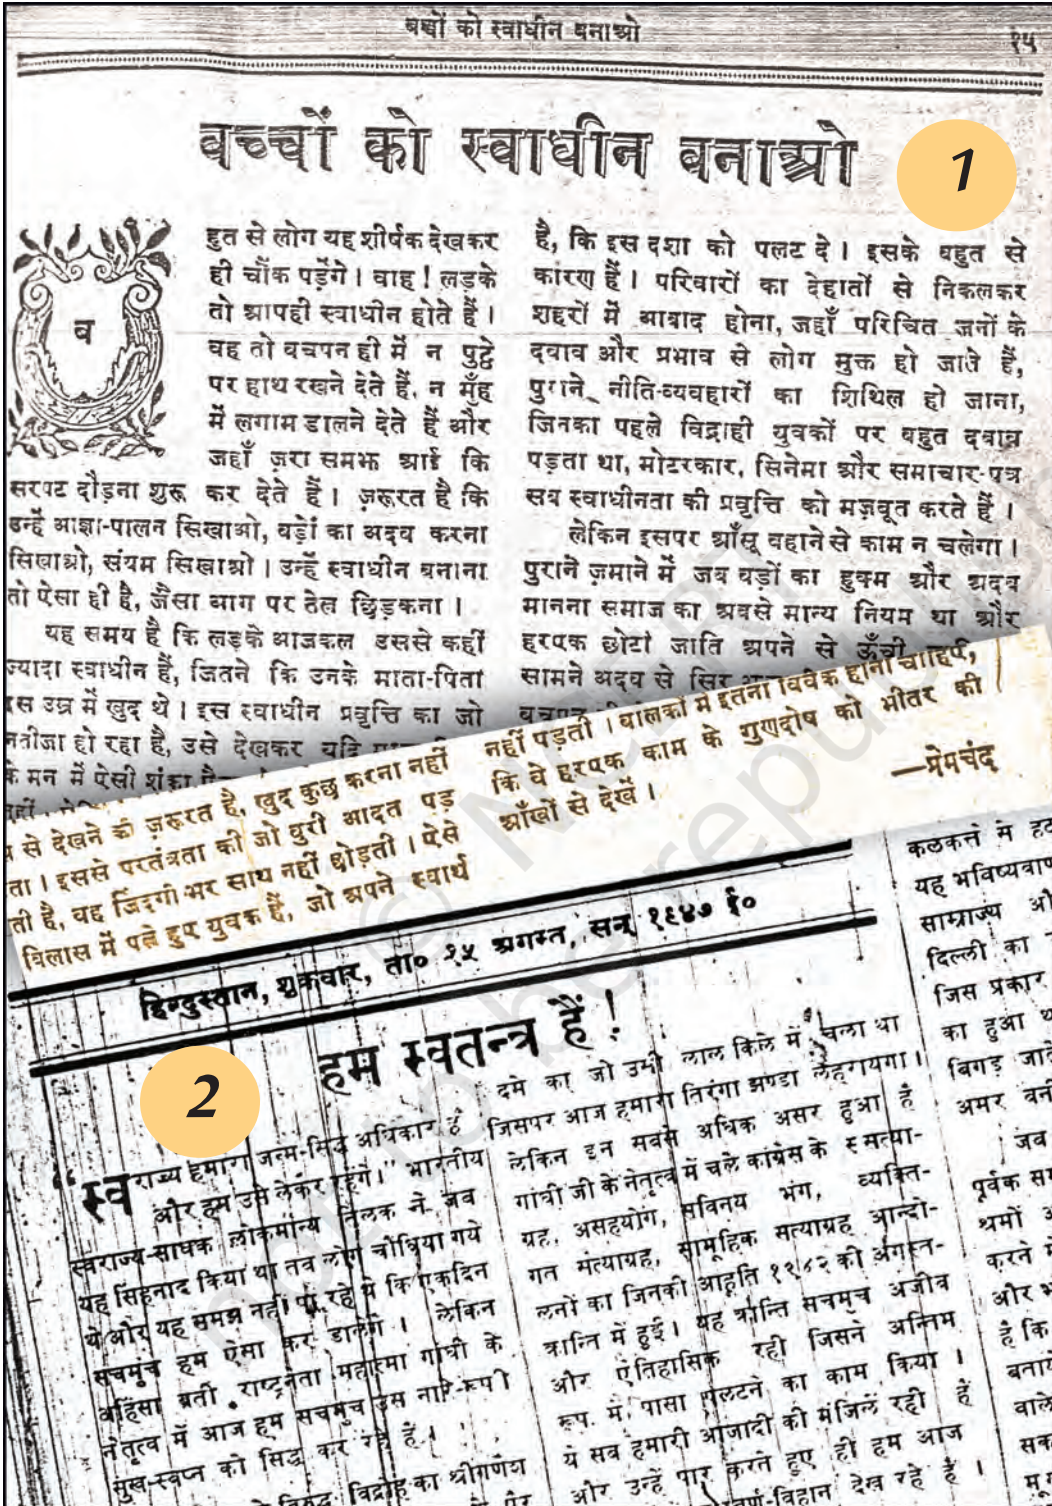 बच्चों को स्वाधीन बनाओ
१५
वच्चों को स्वाधीन बनाओ
1
व
हुत से लोग यह शीर्षक देखकर
ही चौंक पड़ेंगे। वाह! लड़के
तो आपही स्वाधीन होते हैं।
वह तो बचपन ही में न पुट्ठे
पर हाथ रखने देते हैं, न मुँह
में लगाम डालने देते हैं और
जहाँ ज़रा समझ आई कि
सरपट दौड़ना शुरू कर देते हैं। ज़रूरत है कि
उन्हें आज्ञा-पालन सिखाओ, बड़ों का अदब करना
सिखाओ, संयम सिखाओ। उन्हें स्वाधीन बनाना
तो ऐसा ही है, जैसा आग पर तेल छिड़कना।
यह समय है कि लड़के आजकल उससे कहीं
ज्यादा स्वाधीन हैं, जितने कि उनके माता-पिता
इस उम्र में खुद थे। इस स्वाधीन प्रवृत्ति का जो
नतीजा हो रहा है, उसे देखकर यदि
के मन में ऐसी शंका
है, कि इस दशा को पलट दे। इसके बहुत से
कारण हैं। परिवारों का देहातों से निकलकर
शहरों में आबाद होना, जहाँ परिचित जनों के
दबाव और प्रभाव से लोग मुक्त हो जाते हैं,
पुराने नीति-व्यवहारों का शिथिल हो जाना,
जिनका पहले विद्रोही युवकों पर बहुत दबाव
पड़ता था, मोटरकार, सिनेमा और समाचार-पत्र
सब स्वाधीनता की प्रवृत्ति को मज़बूत करते हैं।
लेकिन इसपर आँसू बहाने से काम न चलेगा।
पुराने ज़माने में जब बड़ों का हुक्म और अदब
मानना समाज का सबसे मान्य नियम था और
हरएक छोटी जाति अपने से ऊँची
सामने अदब से सिर
से देखने की ज़रूरत है, खुद कुछ करना नहीं
ता। इससे परतंत्रता की जो बुरी आदत पड़
ती है, वह जिंदगी भर साथ नहीं छोड़ती। ऐसे
विलास में पले हुए युवक हैं, जो अपने स्वार्थ
नहीं पड़ती। बालकों में इतना विवेक होना चाहिए,
कि वे हरएक काम के गुणदोष को भीतर की
आँखों से देखें।
—प्रेमचंद
हिन्दुस्तान, शुक्रवार, ता० १५ अगस्त, सन् १९४७ ई०
हम स्वतन्त्र हैं!
2
“स्वराज्य हमारा जन्म-सिद्ध अधिकार है
और हम उसे लेकर रहेंगे।” भारतीय
स्वराज्य-साधक लोकमान्य तिलक ने जब
यह सिंहनाद किया था तब लोग चौंधिया गये
थे और यह समझ नहीं पा रहे थे कि एकदिन
सचमुच हम ऐसा कर डालेंगे। लेकिन
अहिंसा व्रती राष्ट्रनेता महात्मा गांधी के
नेतृत्व में आज हम सचमुच उस
सुख-स्वप्न को सिद्ध कर रहे हैं।
विद्रोह का श्रीगणेश
दमे का जो उसी लाल किले में चला था
जिसपर आज हमारा तिरंगा झण्डा लहरायगा।
लेकिन इन सबसे अधिक असर हुआ है
गांधी जी के नेतृत्व में चले कांग्रेस के सत्या-
ग्रह, असहयोग, सविनय भंग, व्यक्ति-
गत सत्याग्रह, सामूहिक सत्याग्रह आन्दो-
लनों का जिनकी आहूति १९४२ की अगस्त-
क्रान्ति में हुई। यह क्रान्ति सचमुच अजीव
और ऐतिहासिक रही जिसने अन्तिम
रूप में पासा पलटने का काम किया।
ये सब हमारी आजादी की मंजिलें रही हैं
और उन्हें पार करते हुए ही हम आज
स्वर्ण-विहान देख रहे हैं।
कलकत्ते में
यह
साम्राज्य
दिल्ली का
जिस प्रकार
का हुआ
बिगड़
अमर
जब
पूर्वक
करने
और
है कि
वाले
© NCERT
not to be republished